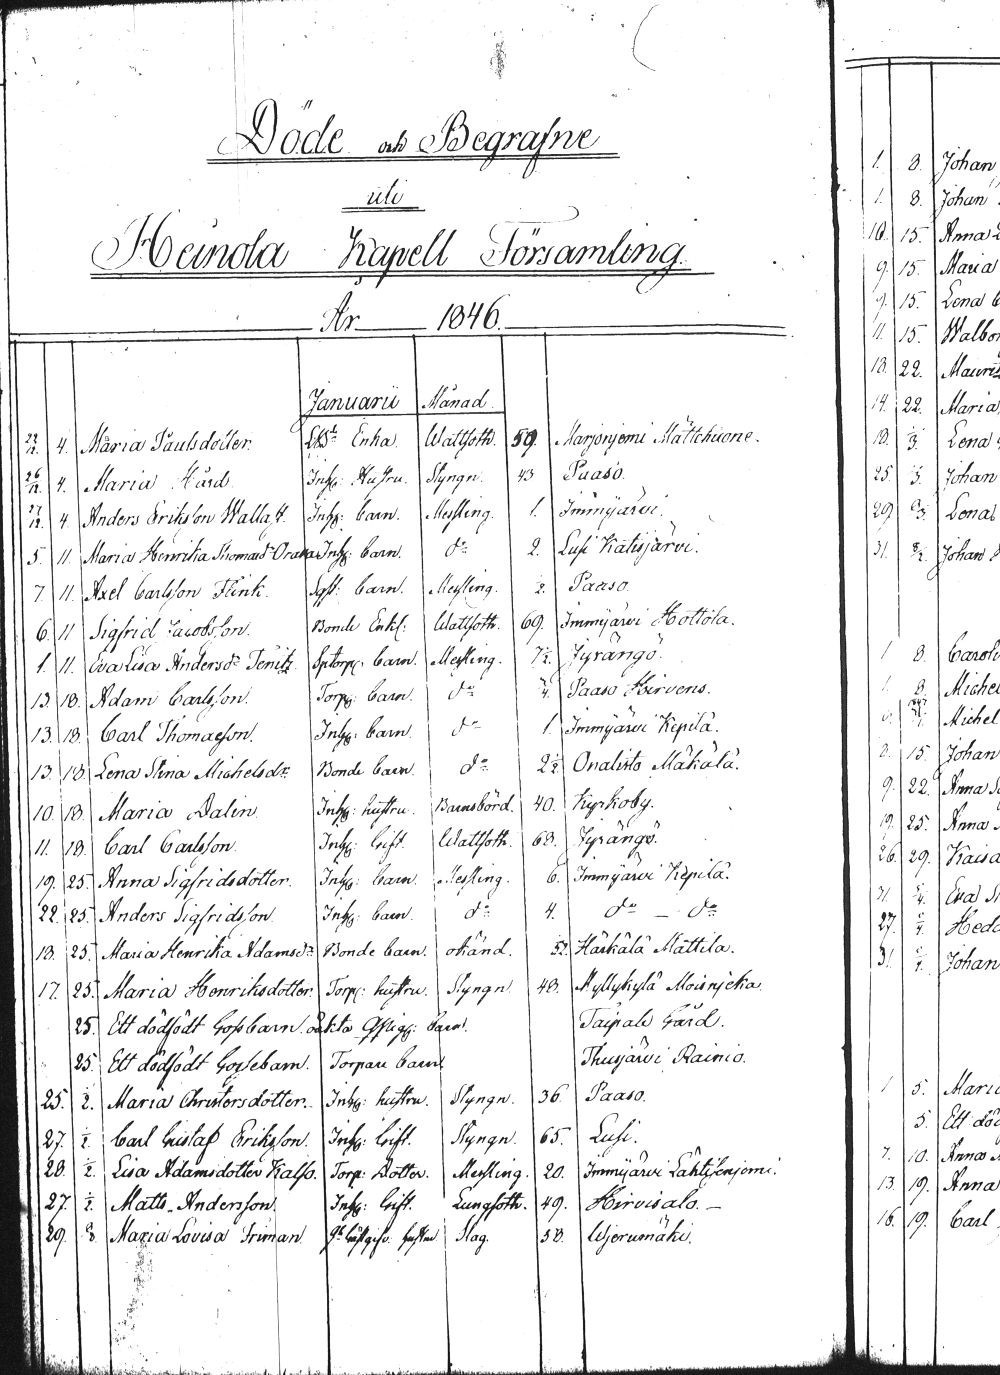 Döde och Begrafne
uti
Heinola Kapell Församling
År 1846.
Januarii Månad.
22/12 4. Maria Paulsdotter. Enka. Wattsoth. 59. Marjoniemi
26/12 4. Maria Hård Inhg: Hustru. Styngn. 43 Paaso.
27/12 4. Anders Eriksson Inhg: barn. Messling. 1. Immijärvi.
5. 11. Maria Henrika Thomasdr Inhg: barn. do 2. Lusi
7. 11. Axel Carlsson Flink. barn. Messling. Paaso.
6. 11 Sigfrid Jacobsson. Bonde Enkl: Wattsoth. 69. Immijärvi Hottola.
1. 11. Eva Lisa Andersdr barn. Messling. 7 1/2. Jyrängö.
13. 18. Adam Carlsson. Torp: barn. do Paaso Hirvens.
13. 18. Carl Thomasson. Inhg: barn. do 1. Immijärvi Kepilä.
13. 18. Lena Stina Michelsdr. Bonde barn. do 2 1/2 Onalisto Mäkälä.
10. 18. Maria Dalin. Inhg: hustru. Barnsbörd. 40. Kyrkoby.
11. 18. Carl Carlsson. Inhg: Gift. Wattsoth. 68. Jyrängö.
19. 25. Anna Sigfridsdotter. Inhg: barn. Messling. 6. Immijärvi Kepilä.
22. 25. Anders Sigfridsson. Inhg: barn. do 4. do — do
18. 25. Maria Henrika Adamsdr Bonde barn. okänd. Härkälä Mattila.
17. 25. Maria Henriksdotter. Torp: hustru. Styngn. 48. Myllykylä
25. Ett dödfödt Gossbarn. barn. Taipale Gård.
25. Ett dödfödt Gossebarn. Torpare barn. Thusjärvi Rainio.
25. 1/2. Maria Christersdotter. Inhg: hustru. Styngn. 36. Paaso.
27. 1/2. Carl Gustaf Eriksson. Inhg: Gift. Styngn. 65. Lusi.
28. 1/2. Lisa Adamsdotter Torp: Dotter. Messling. 20. Immijärvi
27. 1/2. Matts Andersson. Inhg: Gift. Lungsoth. 49. Hirvisalo. —
29. 8/2 Maria Lovisa Friman Slag. 58. Wierumäki.
1. 8. Johan
1. 8. Johan
10. 15. Anna
9. 15. Maria
9. 15. Lena
11. 15. Walbor
18. 22. Maurits
14. 22. Maria
18. Lena
25. Johan
29. Lena
31. Johan
1 8. Carol
1. 8. Michel
Michel
8. 15. Johan
9. 22. Anna
19. 25. Anna
26. 29. Kaisa
31. Eva
27. Hedd
31. Johan
1 5. Maria
5. Ett död
7. 10. Anna
13. 19. Anna
16. 19. Carl